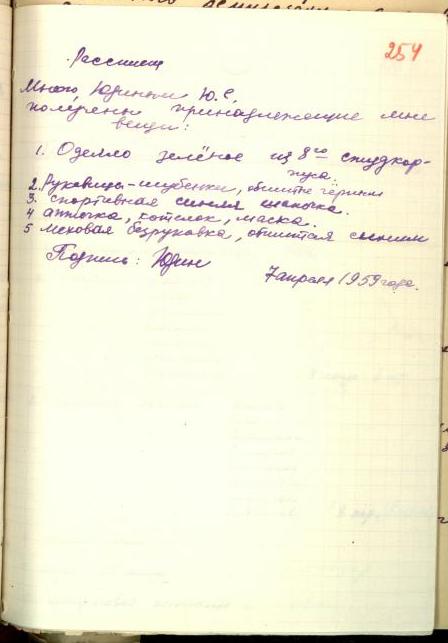 254
Расписка
Мною, Юдиным Ю.Е,
получены принадлежащие мне
вещи:
1. Одеяло зелёное из 8го студкор-
пуса.
2. Рукавицы-шубенки, обшитые чёрным
3. Спортивная синяя шапочка.
4 аптечка, котелок, маска.
5 меховая безрукавка, обшитая синим
Подпись: Юдин
7 апреля 1959 года.